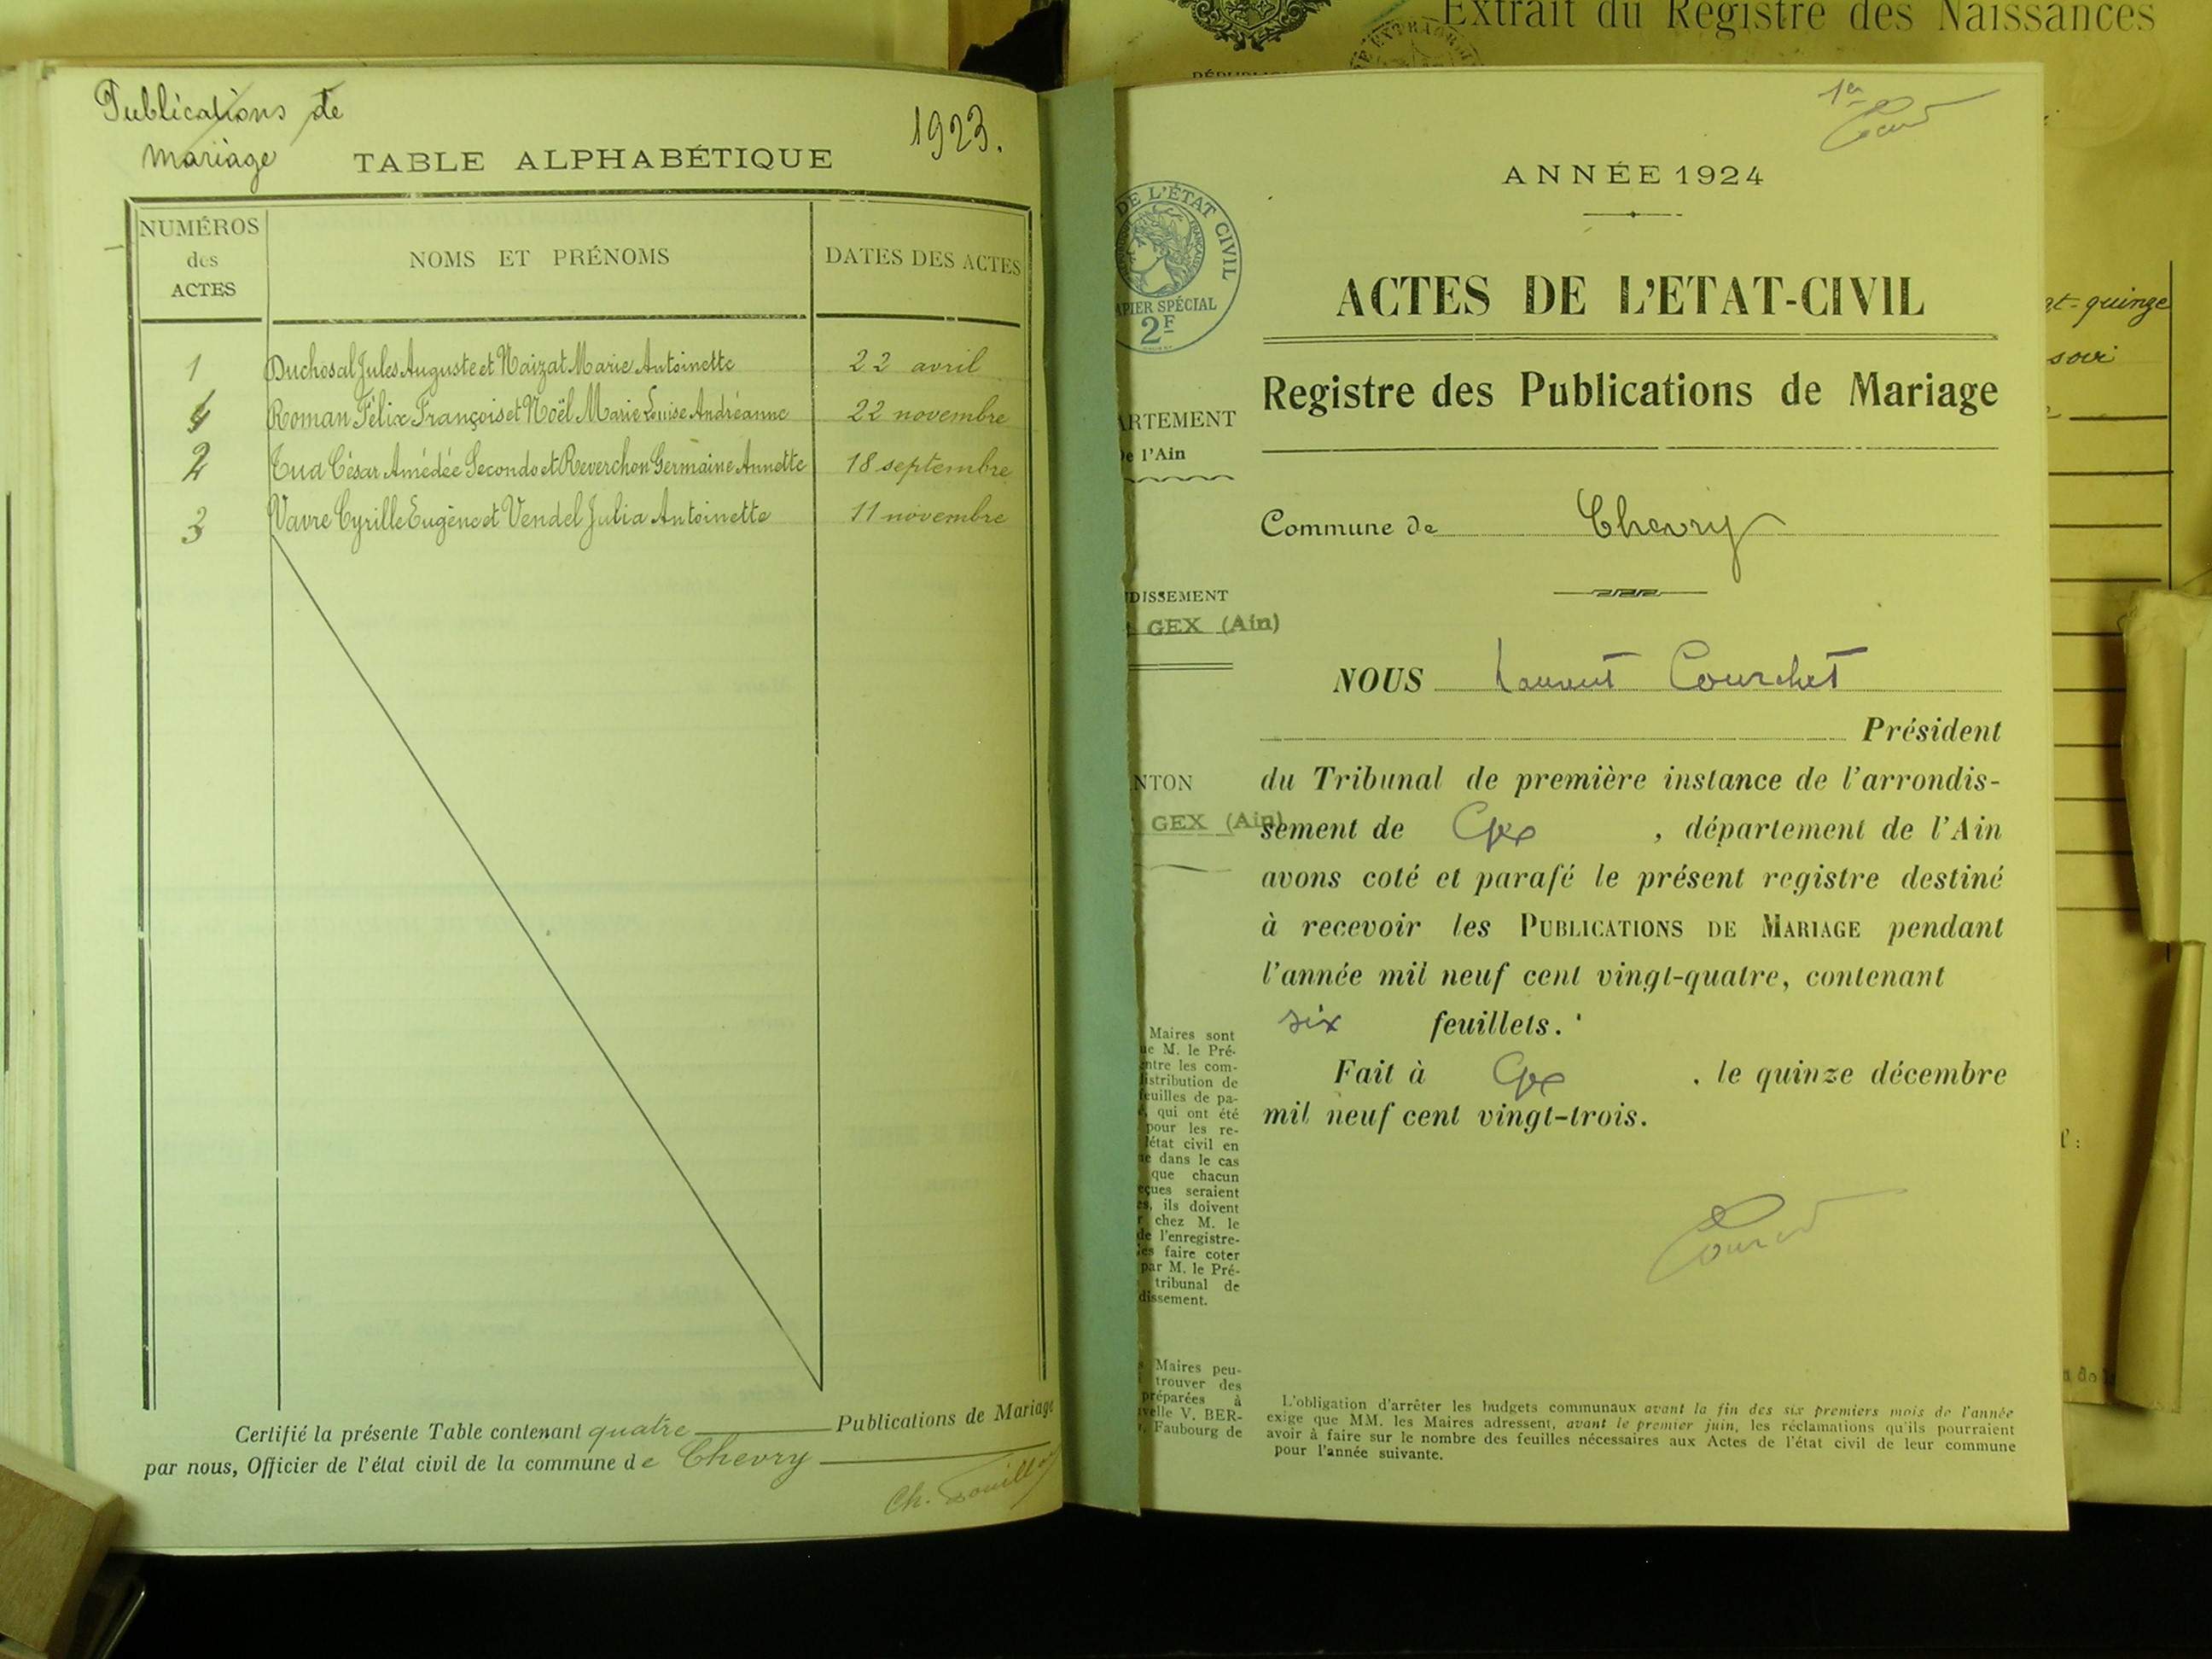 Publications de
mariage
TABLE ALPHABÉTIQUE
1923.
NUMÉROS
des
ACTES
NOMS ET PRÉNOMS
DATES DES ACTES
1 Duchosal Jules Auguste et Naizat Marie Antoinette 22 avril
4 Roman Félix François et Noël Marie Louise Andréanne 22 novembre
2 Tua César Amédée Secondo et Reverchon Germaine Annette 18 septembre
3 Vavre Cyrille Eugène et Vendel Julia Antoinette 11 novembre
Certifié la présente Table contenant quatre Publications de Mariage
par nous, Officier de l'état civil de la commune de Chevry
Ch.
Extrait du Registre des Naissances
1er
ANNÉE 1924
DE L'ÉTAT CIVIL
PAPIER SPÉCIAL
2F
ACTES DE L'ETAT-CIVIL
Registre des Publications de Mariage
ARTEMENT
de l'Ain
Commune de Chevry
DISSEMENT
GEX (Ain)
NOUS Laurent Courchet
Président
NTON
GEX (Ain)
du Tribunal de première instance de l'arrondis-
sement de Gex, département de l'Ain
avons coté et parafé le présent registre destiné
à recevoir les PUBLICATIONS DE MARIAGE pendant
l'année mil neuf cent vingt-quatre, contenant
six feuillets.
Fait à Gex, le quinze décembre
mil neuf cent vingt-trois.
Maires sont
ue M. le Pré-
entre les com-
distribution de
feuilles de pa-
qui ont été
pour les re-
l'état civil en
ue dans le cas
que chacun
eçues seraient
es, ils doivent
r chez M. le
de l'enregistre-
les faire coter
par M. le Pré-
tribunal de
dissement.
Maires peu-
trouver des
préparées à
uvelle V. BER-
Faubourg de
L'obligation d'arrêter les budgets communaux avant la fin des six premiers mois de l'année
exige que MM. les Maires adressent, avant le premier juin, les réclamations qu'ils pourraient
avoir à faire sur le nombre des feuilles nécessaires aux Actes de l'état civil de leur commune
pour l'année suivante.
et-quinze
soir